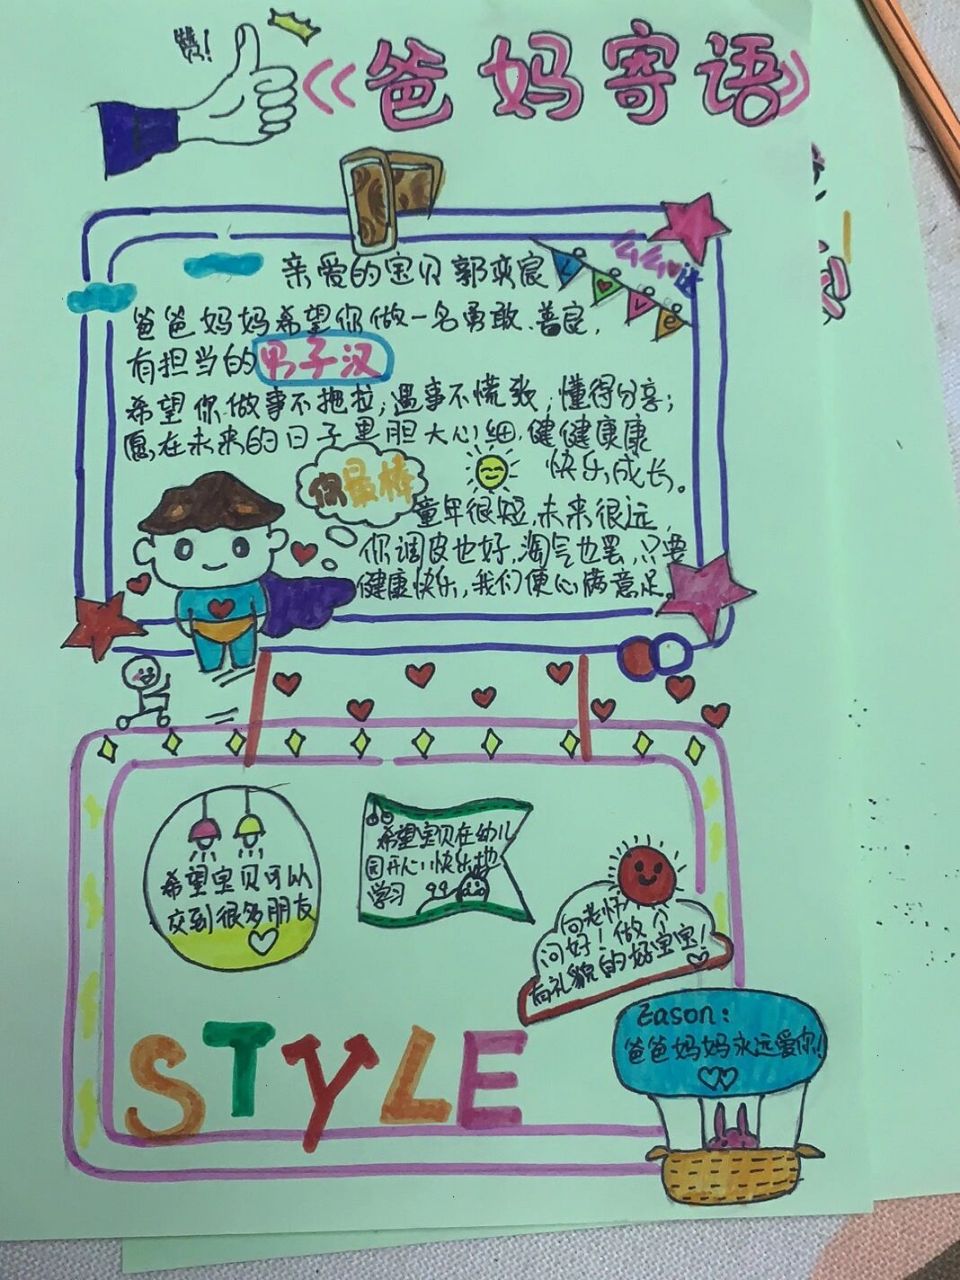 赞!
《爸妈寄语》
么么哒
Love
亲爱的宝贝郭奕宸
爸爸妈妈希望你做一名勇敢、善良,
有担当的男子汉
希望你做事不拖拉;遇事不慌张;懂得分享;
愿在未来的日子里胆大心细,健健康康
快乐成长。
你最棒
童年很短,未来很远,
你调皮也好,淘气也罢,只要
健康快乐,我们便心满意足。
希望宝贝可以
交到很多朋友
希望宝贝在幼儿
园开心快乐地
学习
向老师
问好!做个
有礼貌的好宝宝!
STYLE
Eason:
爸爸妈妈永远爱你!